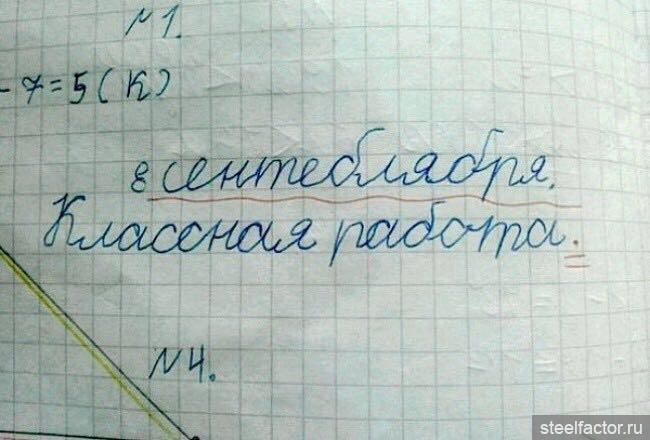 №1.
-7=5(К)
8 сентеблября.
Классная работа.
№4.
steelfactor.ru